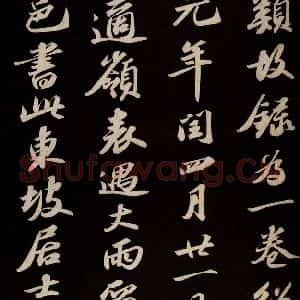 類故錄為一卷紹
元年閏四月廿一日
適嶺表遇大雨留
邑書此東坡居士
Shufawang.Cn